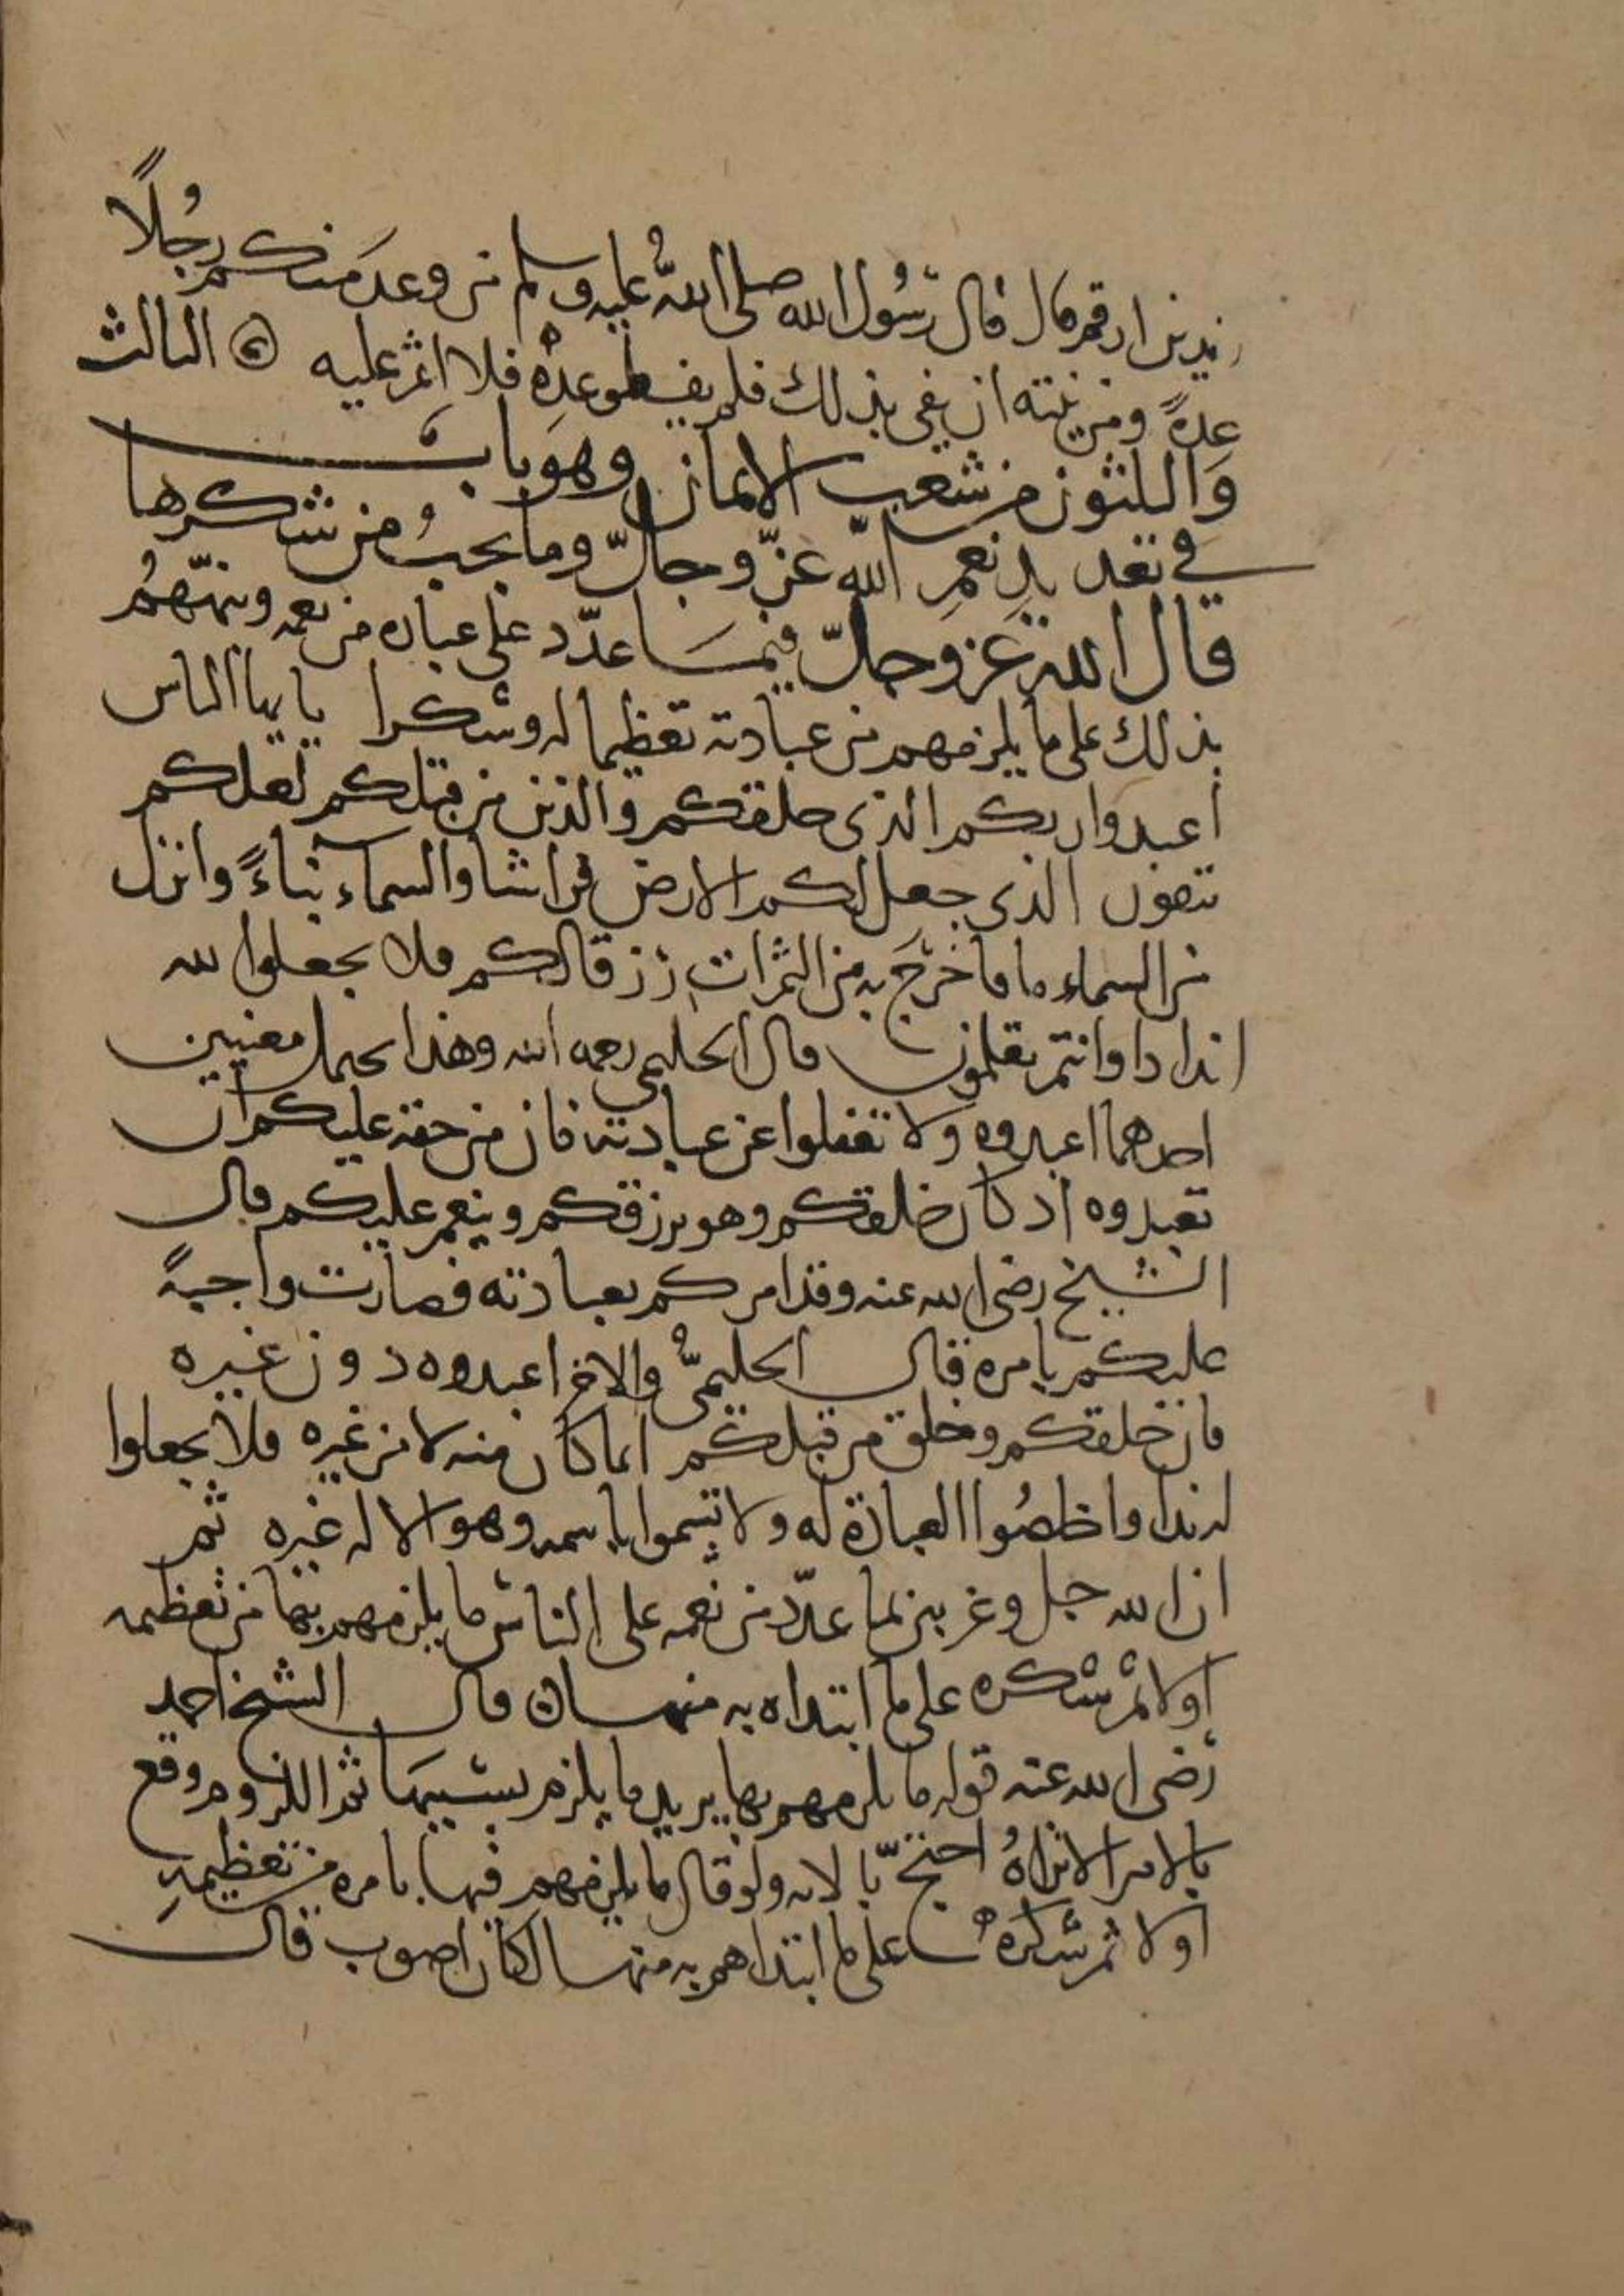 زيد بن ارقم قال قال رسول الله صلى الله عليه وسلم من وعد منكم رجلاً
عدةً ومن نيته ان يفي بذلك فلم يف لموعده فلا اثم عليه الثالث
والثلثون من شعب الايمان وهو باب
في تعديد نعم الله عز وجل وما يجب من شكرها
قال الله عز وجل فيما عدد على عباده من نعمه ونبههم
بذلك على ما يلزمهم من عبادته تعظيما له وشكرا يا ايها الناس
اعبدوا ربكم الذي خلقكم والذين من قبلكم لعلكم
تتقون الذي جعل لكم الارض فراشا والسماء بناءً وانزل
من السماء ما فاخرج به من الثمرات رزقا لكم فلا تجعلوا لله
اندادا وانتم تعلمون قال الحليمي رحمه الله وهذا يحتمل معنيين
احدهما اعبدوه ولا تغفلوا عن عبادته فان من حقه عليكم ان
تعبدوه اذ كان خلقكم وهو يرزقكم وينعم عليكم قال
الشيخ رضي الله عنه وقد امركم بعبادته فصارت واجبةً
عليكم بامره قال الحليمي والاخر اعبدوه دون غيره
فان خلقكم وخلق من قبلكم انما كان منه لا من غيره فلا تجعلوا
له ندا واخلصوا العبادة له ولا تسموا باسمه وهو الاله غيره ثم
ان الله جل وعز بين لما عدد من نعمه على الناس ما يلزمهم بها من تعظيمه
اولا ثم شكره على ما ابتداه به منها قال الشيخ احمد
رضي الله عنه قوله ما يلزمهم بها يريد ما يلزم بسببها ثم اللزوم وقع
بالامر الا تراه احتج بالاية ولو قال ما يلزمهم فيها بامره من تعظيمه
اولا ثم شكره على ما ابتداهم به منها لكان اصوب قال